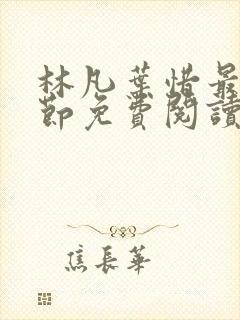 林凡葉惜最
節免費閱讀
焦長華